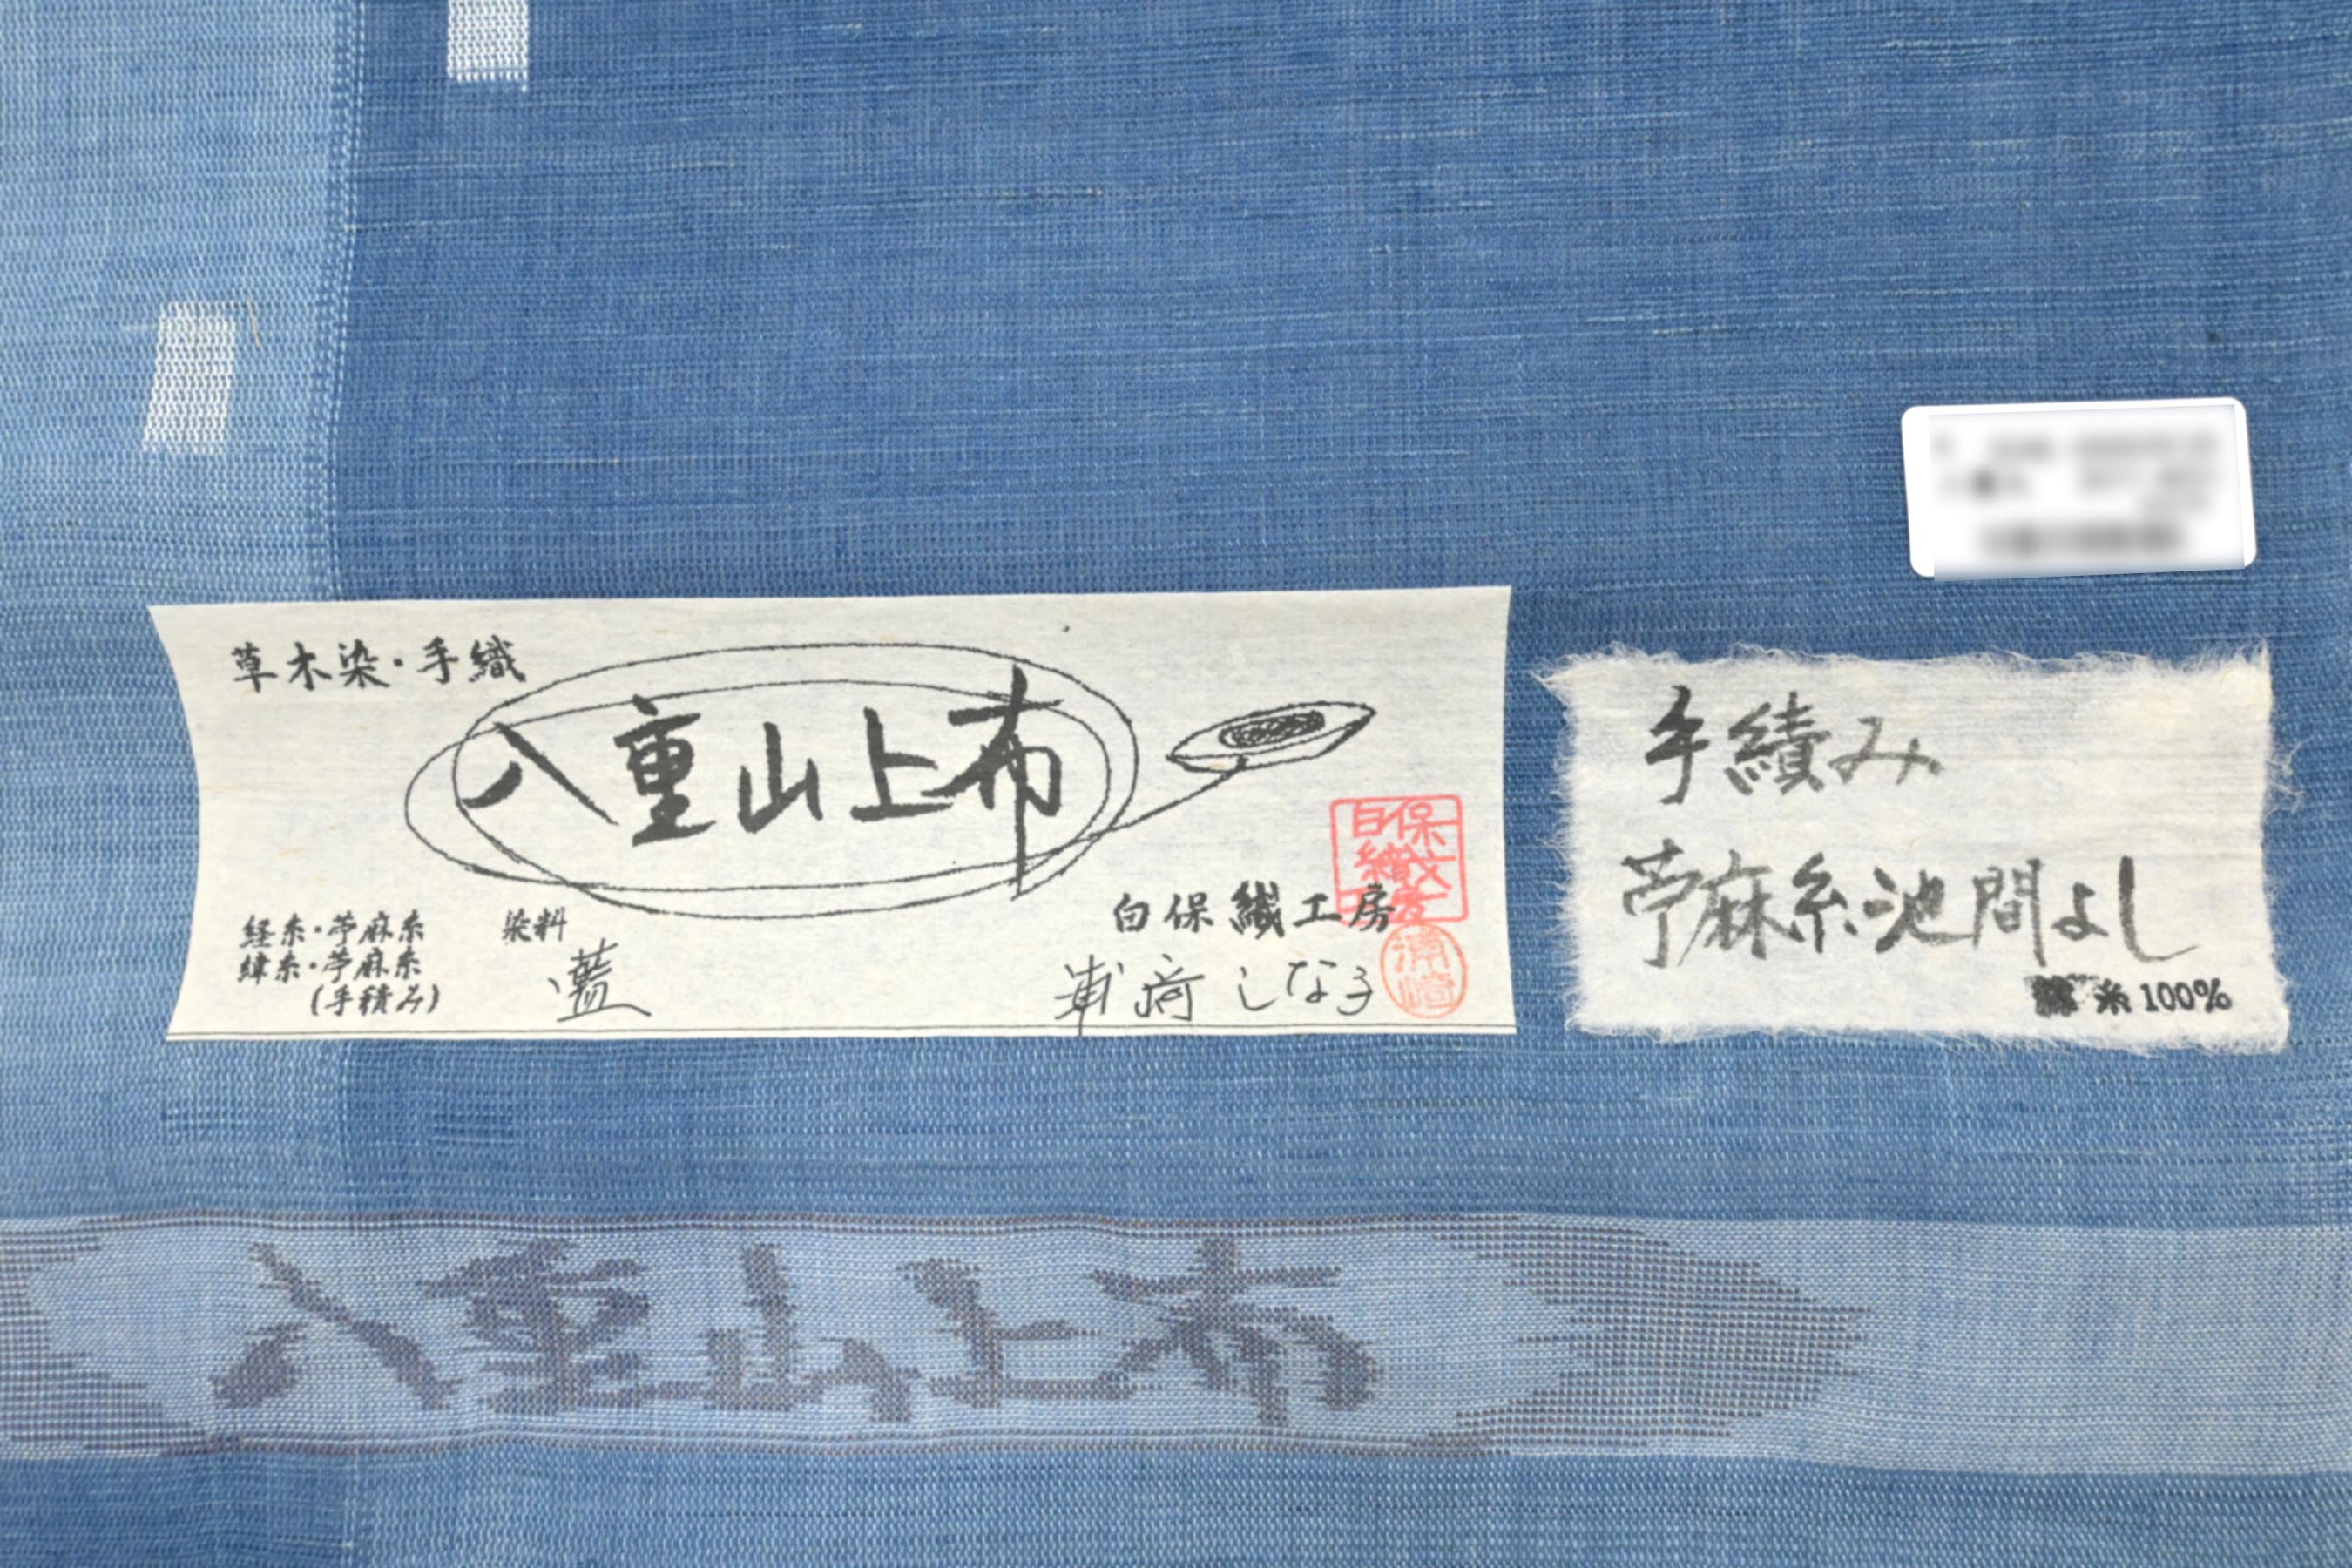 草木染・手織
八重山上布
経糸・苧麻糸
緯糸・苧麻糸
(手積み)
染料
藍
白保織工房
白保織工房
浦崎
しな子
手績み
苧麻糸池間よし
糸100%
八重山上布